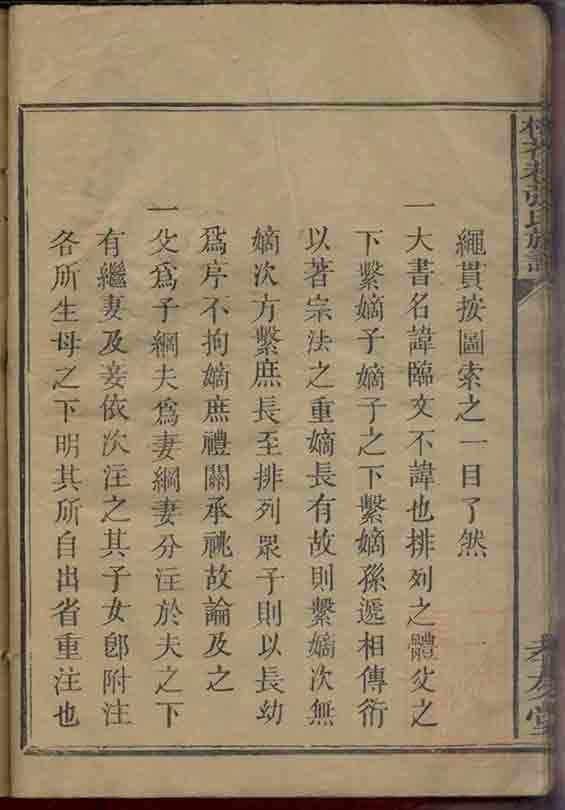 張氏族譜
孝友堂
繩貫按圖索之一目了然
一大書名諱臨文不諱也排列之體父之
下繫嫡子嫡子之下繫嫡孫遞相傳衍
以著宗法之重嫡長有故則繫嫡次無
嫡次方繫庶長至排列眾子則以長幼
爲序不拘嫡庶禮關承祧故論及之
一父爲子綱夫爲妻綱妻分注於夫之下
有繼妻及妾依次注之其子女卽附注
各所生母之下明其所自出省重注也